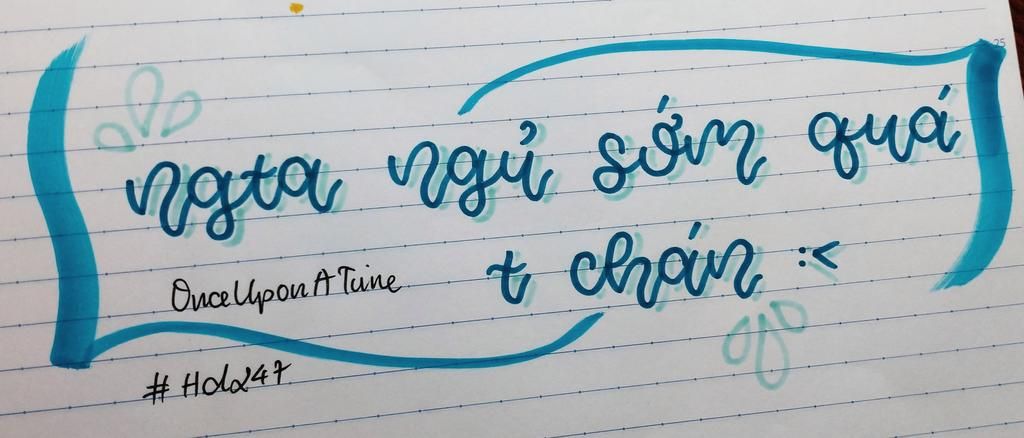 ngta ngủ sớm quá
t chán :<
OnceUponATime
#Hda247
25